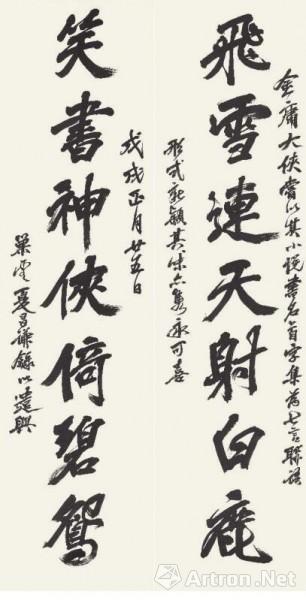 金庸大俠嘗以其小說書名首字集為七言聯語
飛雪連天射白鹿
形式新穎其味亦雋永可喜
戊戌正月廿五日
笑書神俠倚碧鴛
夏昌謙錄以遣興
Artron.Net